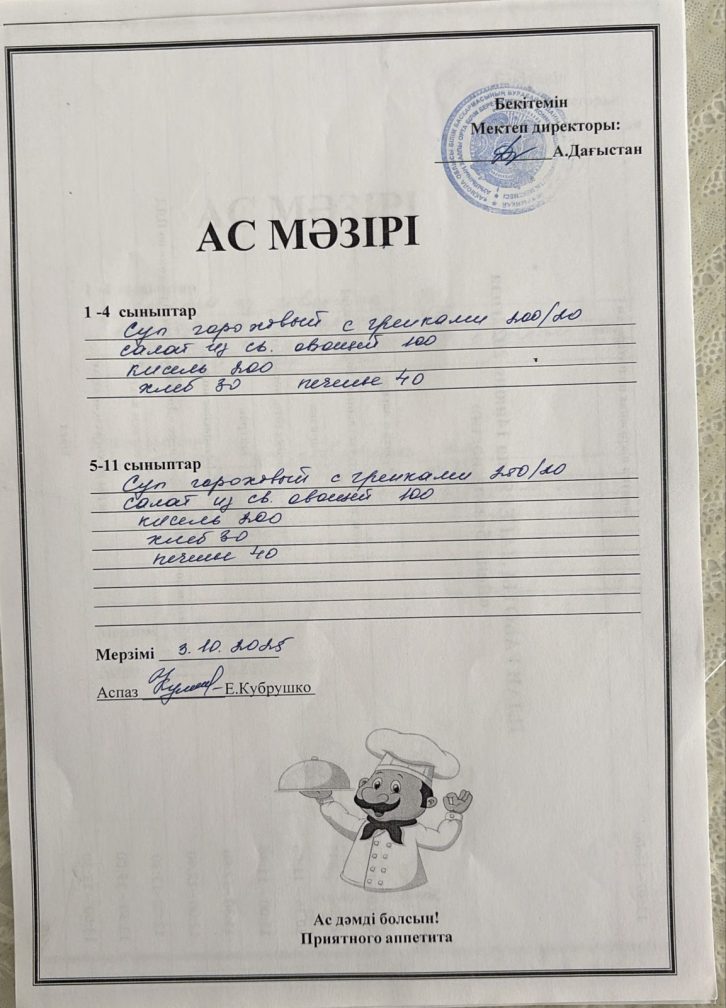 Бекітемін
Мектеп директоры:
А.Дағыстан
АС МӘЗІРІ
1 -4 сыныптар
Суп гороховый с гренками 200/20
салат из св. овощей 100
кисель 200
хлеб 30 печенье 40
5-11 сыныптар
Суп гороховый с гренками 250/20
салат из св. овощей 100
кисель 200
хлеб 30
печенье 40
Мерзімі 3.10.2025
Аспаз Е.Кубрушко
Ас дәмді болсын!
Приятного аппетита